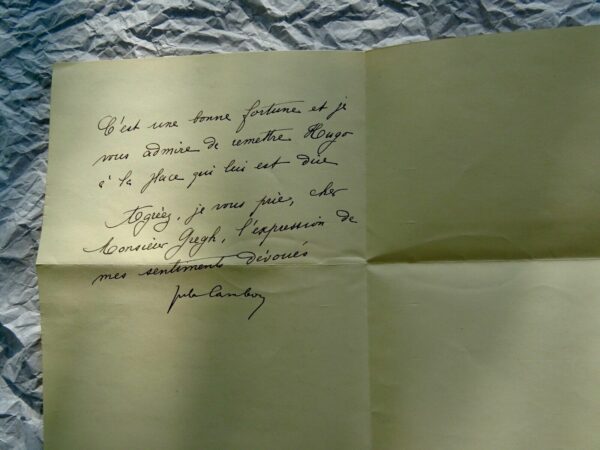 C'est une bonne fortune et je
vous admire de remettre Hugo
à la place qui lui est due
Agréez, je vous prie, cher
Monsieur Gregh, l'expression de
mes sentiments dévoués
Jules Cambon